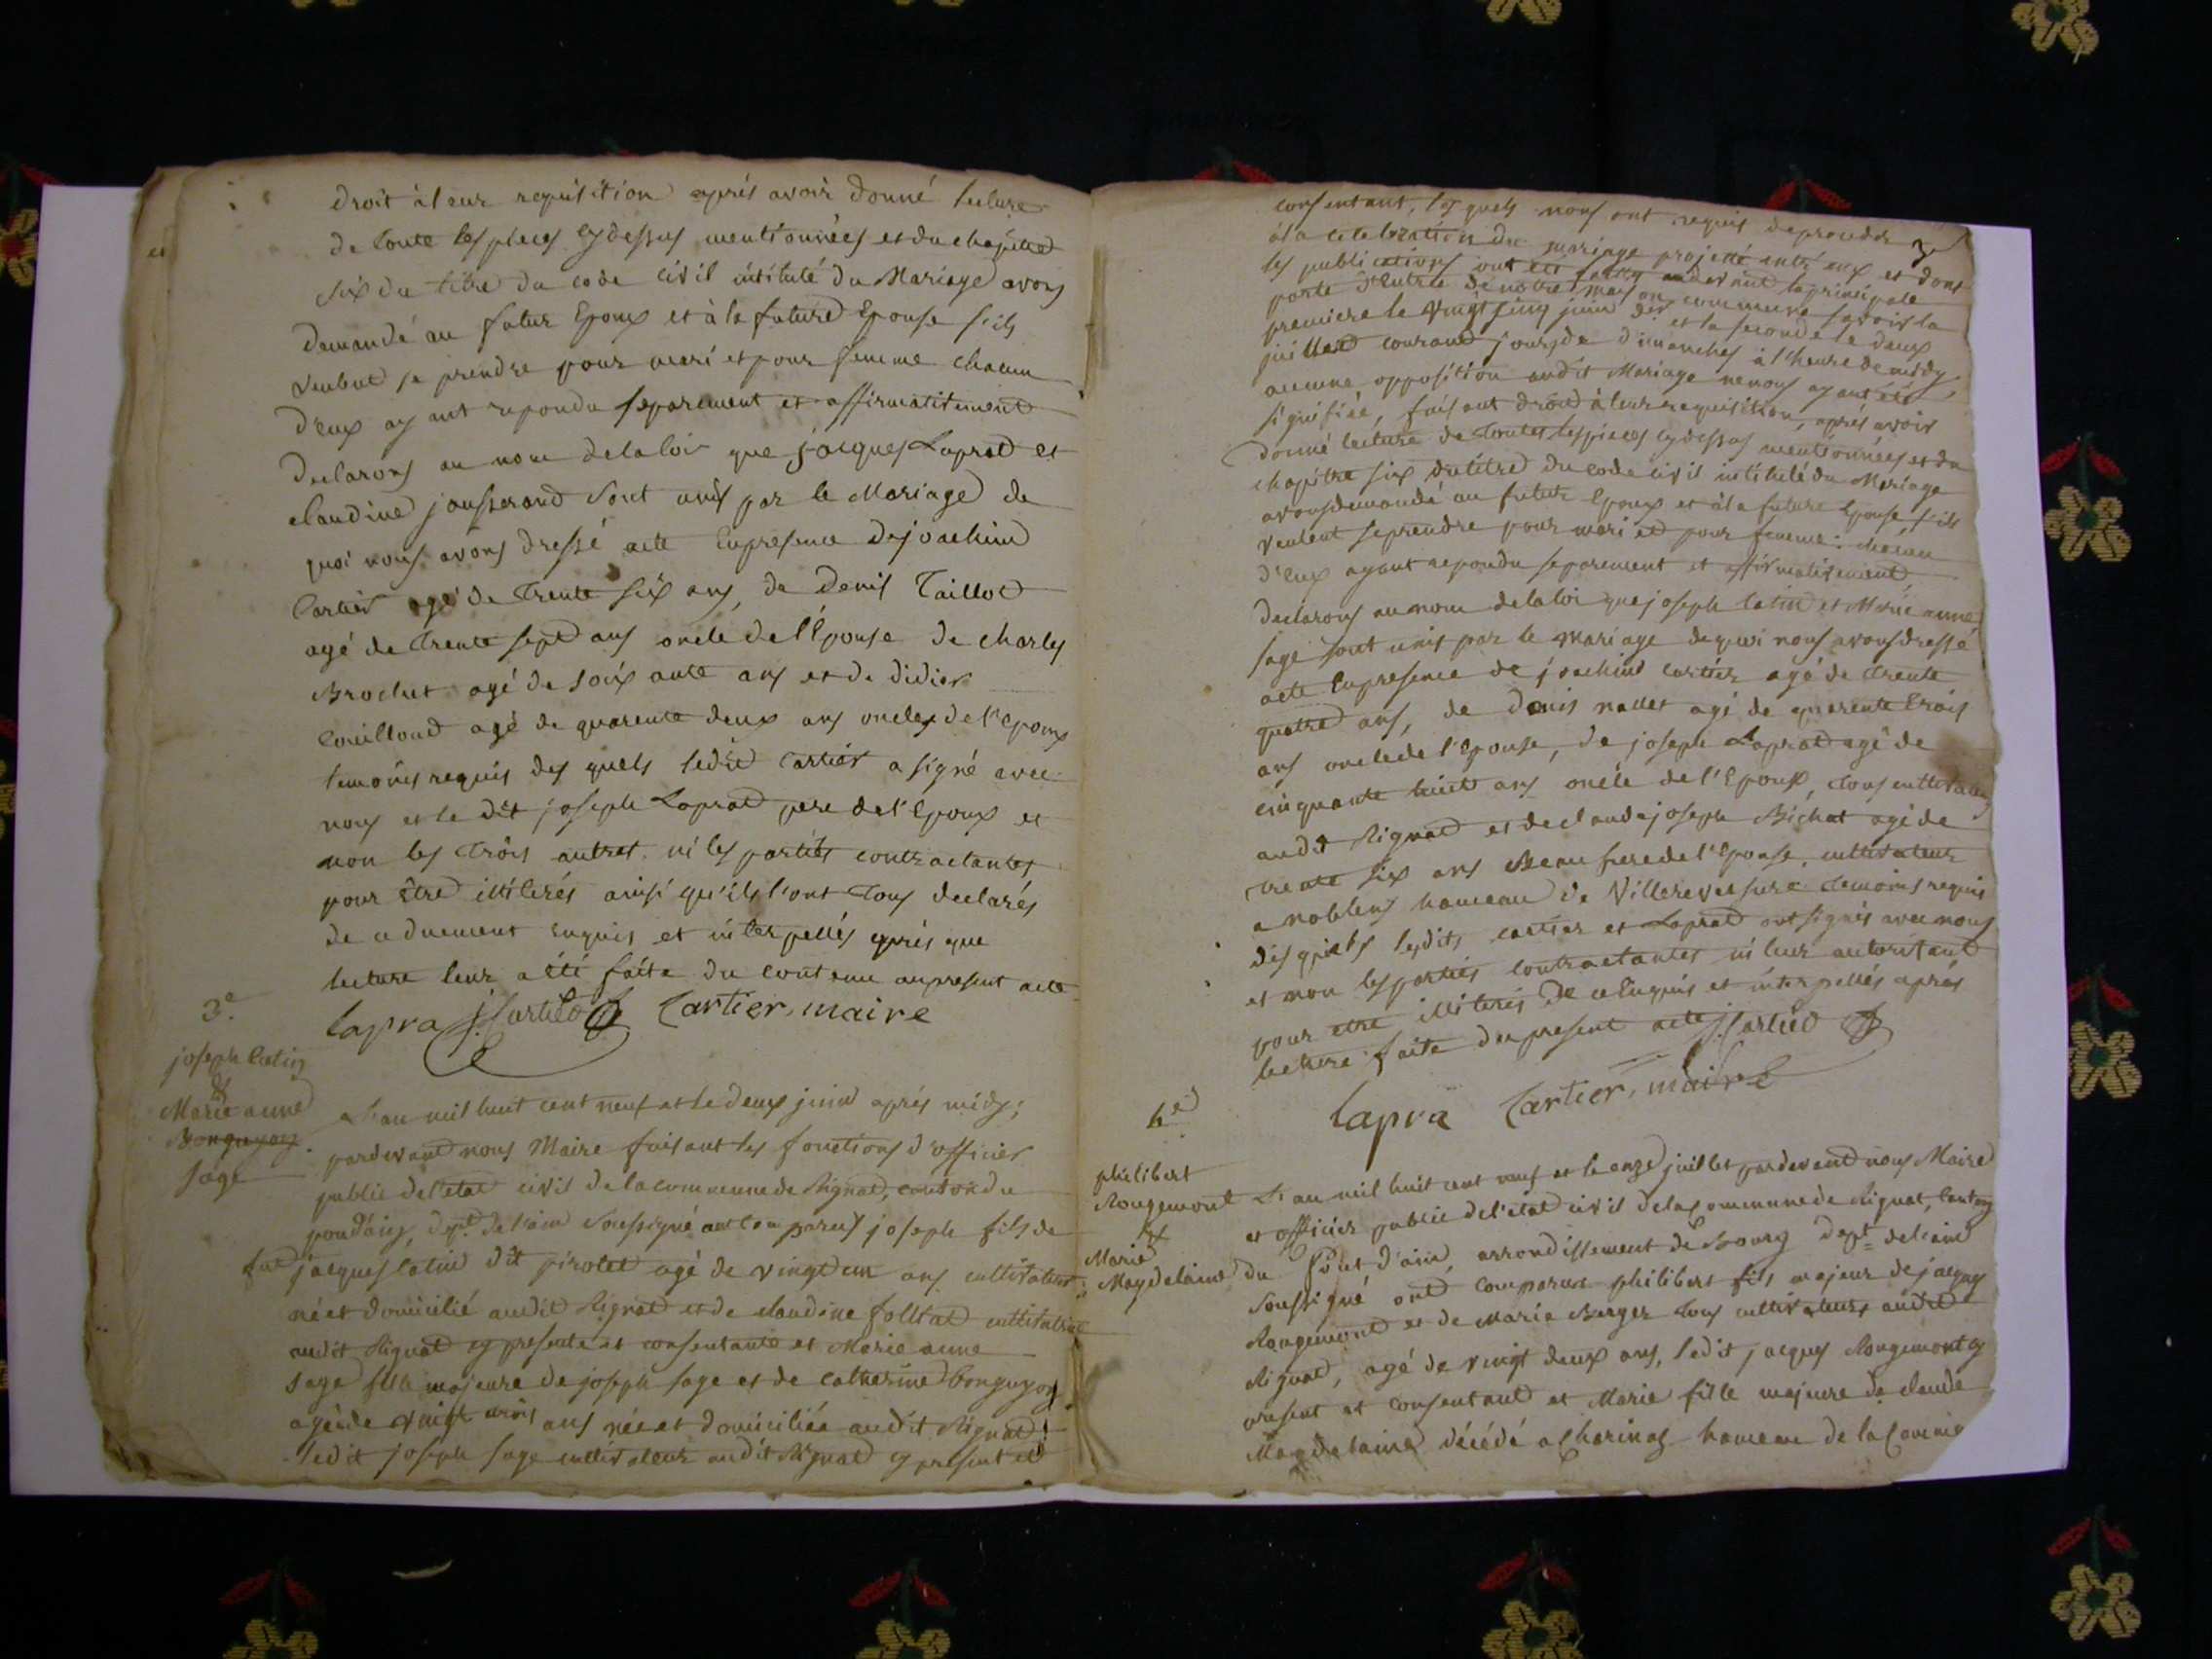 droit à leur requisition après avoir donné lecture
de toute les pieces cy dessus mentionnées et du chapitre
six du titre du code civil intitulé du Mariage avons
demandé au futur Epoux et à la future Epouse s'ils
veulent se prendre pour mari et pour femme chacun
d'eux ayant repondu separement et affirmativement
declarons au nom de la loi que jacques Laprat et
claudine jousserand sont unis par le Mariage de
quoi nous avons dressé acte En presence de joachim
Cartier agé de trente six ans, de Denis Taillot
agé de trente sept ans oncle de l'Epouse de charles
Brochet agé de soixante ans et de didier
Couilloud agé de quarente deux ans oncles de l'Epoux
temoins requis des quels ledit Cartier a signé avec
nous et le dit joseph Laprat pere de l'Epoux et
non les trois autres ni les parties contractantes
pour être illiterés ainsi qu'ils l'ont tous declarés
de ce duement enquis et interpellés après que
lecture leur a été faite du contenu au present acte
lapra j: Cartier Cartier, maire
3.e
joseph Catin
et
Marie anne
Bonguyon
sage
L'an mil huit cent neuf et le deux juin après midy;
pardevant nous Maire faisant les fonctions d'officier
public de l'etat civil de la commune de Rignat, canton du
pondain, dept. de l'ain soussigné ont comparus joseph fils de
fut jacques Catin dit pirolet agé de vingt un ans cultivateur
né et domicilié audit Rignat et de claudine folliat cultivatrice
audit Rignat cy presente et consentante et Marie anne
sage fille majeure de joseph sage et de catherine bonguyon
agée de vingt trois ans née et domiciliée audit Rignat;
ledit joseph sage cultivateur audit Rignat cy present et
consentant, les quels nous ont requis de proceder 3
à la celebration du mariage projetté entr'eux et dont
les publications ont été faites au devant la principale
porte d'Entrée de notre maison commune savoir la
premiere le vingt cinq juin der et la seconde le deux
juillet courant jours de dimanches à l'heure de midy,
aucune opposition audit Mariage ne nous ayant été
signifiée, faisant droit à leur requisition, après avoir
donné lecture de toutes les pieces cy dessus mentionnées et du
chapitre six du titre du code civil intitulé du Mariage
avons demandé au futur Epoux et à la future Epouse s'ils
veulent se prendre pour mari et pour femme: chacun
d'eux ayant repondu separement et affirmativement
declarons au nom de la loi que joseph Catin et Marie anne
sage sont unis par le mariage de quoi nous avons dressé
acte En presence de joachim Cartier agé de trente
quatre ans, de Denis nallet agé de quarente trois
ans oncle de l'Epouse, de joseph Laprat agé de
cinquante huit ans oncle de l'Epoux, tous cultivateurs
audit Rignat et de claude joseph Bichat agé de
trente six ans Beau frere de l'Epouse, cultivateur
a noblens hameau de Villereversure temoins requis
des quels lesdits cartier et Laprat ont signés avec nous
et non les parties contractantes ni leur autorisant
pour etre illiterés de ce Enquis et interpellés après
lecture faite du present acte j: Cartier
lapra Cartier, maire
4e
philibert
Rougemont
et
Marie
Magdelaine
L'an mil huit cent neuf et le onze juillet pardevant nous Maire
et officier public de l'état civil de la commune de Rignat, Canton
du Pont d'ain, arrondissement de Bourg dept. de l'ain
soussigné ont comparus philibert fils majeur de jacques
Rougemont et de Marie Berger tous cultivateurs audit
Rignat, agé de vingt deux ans, ledit jacques Rougemont cy
present et consentant et Marie fille majeure de claude
Magdelaine décédé a Charinas hameau de la Commune